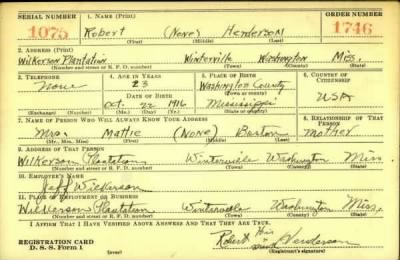 SERIAL NUMBER 1. NAME (Print) ORDER NUMBER
1075 Robert (None) Henderson 1746
(First) (Middle) (Last)
2. ADDRESS (Print)
Wilkerson Plantation Winterville Washington Miss.
(Number and street or R. F. D. number) (Town) (County) (State)
3. TELEPHONE 4. AGE IN YEARS 5. PLACE OF BIRTH 6. COUNTRY OF CITIZENSHIP
None 23 Washington County
DATE OF BIRTH (Town or county)
Oct. 22 1916 Mississippi USA
(Exchange) (Number) (Mo.) (Day) (Yr.) (State or country)
7. NAME OF PERSON WHO WILL ALWAYS KNOW YOUR ADDRESS 8. RELATIONSHIP OF THAT PERSON
Mrs. Mattie (None) Burton Mother
(Mr., Mrs., Miss) (First) (Middle) (Last)
9. ADDRESS OF THAT PERSON
Wilkerson Plantation Winterville Washington Miss
(Number and street or R. F. D. number) (Town) (County) (State)
10. EMPLOYER'S NAME
Jeff Wilkerson
11. PLACE OF EMPLOYMENT OR BUSINESS
Wilkerson Plantation, Winterville Washington Miss.
(Number and street or R. F. D. number) (Town) (County) (State)
I AFFIRM THAT I HAVE VERIFIED ABOVE ANSWERS AND THAT THEY ARE TRUE.
REGISTRATION CARD Robert His Henderson
D. S. S. FORM 1 (over) mark (Registrant's signature)